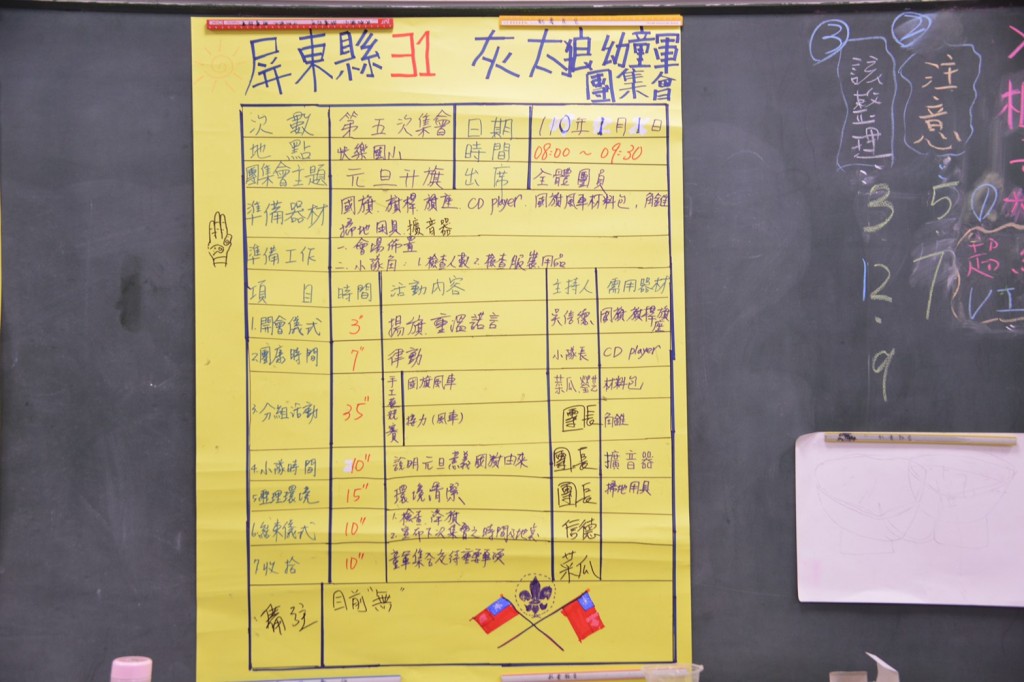 屏東縣 31 灰太狼幼童軍
團集會
次數 第五次集會 日期 110年1月1日
地點 快樂國小 時間 08:00~09:30
團集會主題 元旦升旗 出席 全體團員
準備器材 國旗、旗桿、旗座 CD player、國旗風車材料包、角錐
掃地用具 擴音器
準備工作 一、會場佈置
二、小隊角:1.檢查人數 2.檢查服裝用品
項目 時間 活動內容 主持人 需用器材
1.開會儀式 3" 揚旗 重溫諾言 吳信德 國旗 旗桿 旗座
2.團康時間 7" 律動 小隊長 CD player
3.分組活動 35" 手工 國旗風車 菜瓜 材料包
競賽 接力(風車) 團長 角錐
4.小隊時間 10" 說明元旦意義 國旗由來 團長 擴音器
5.整理環境 15" 環境清潔 團長 掃地用具
6.結束儀式 10" 1.檢查 降旗 信德
2.宣布下次集會之時間及地點
7.收拾 10" 菜瓜
備註 目前"無"
③ 該整理
3.
12.
9
② 注意
5.
7